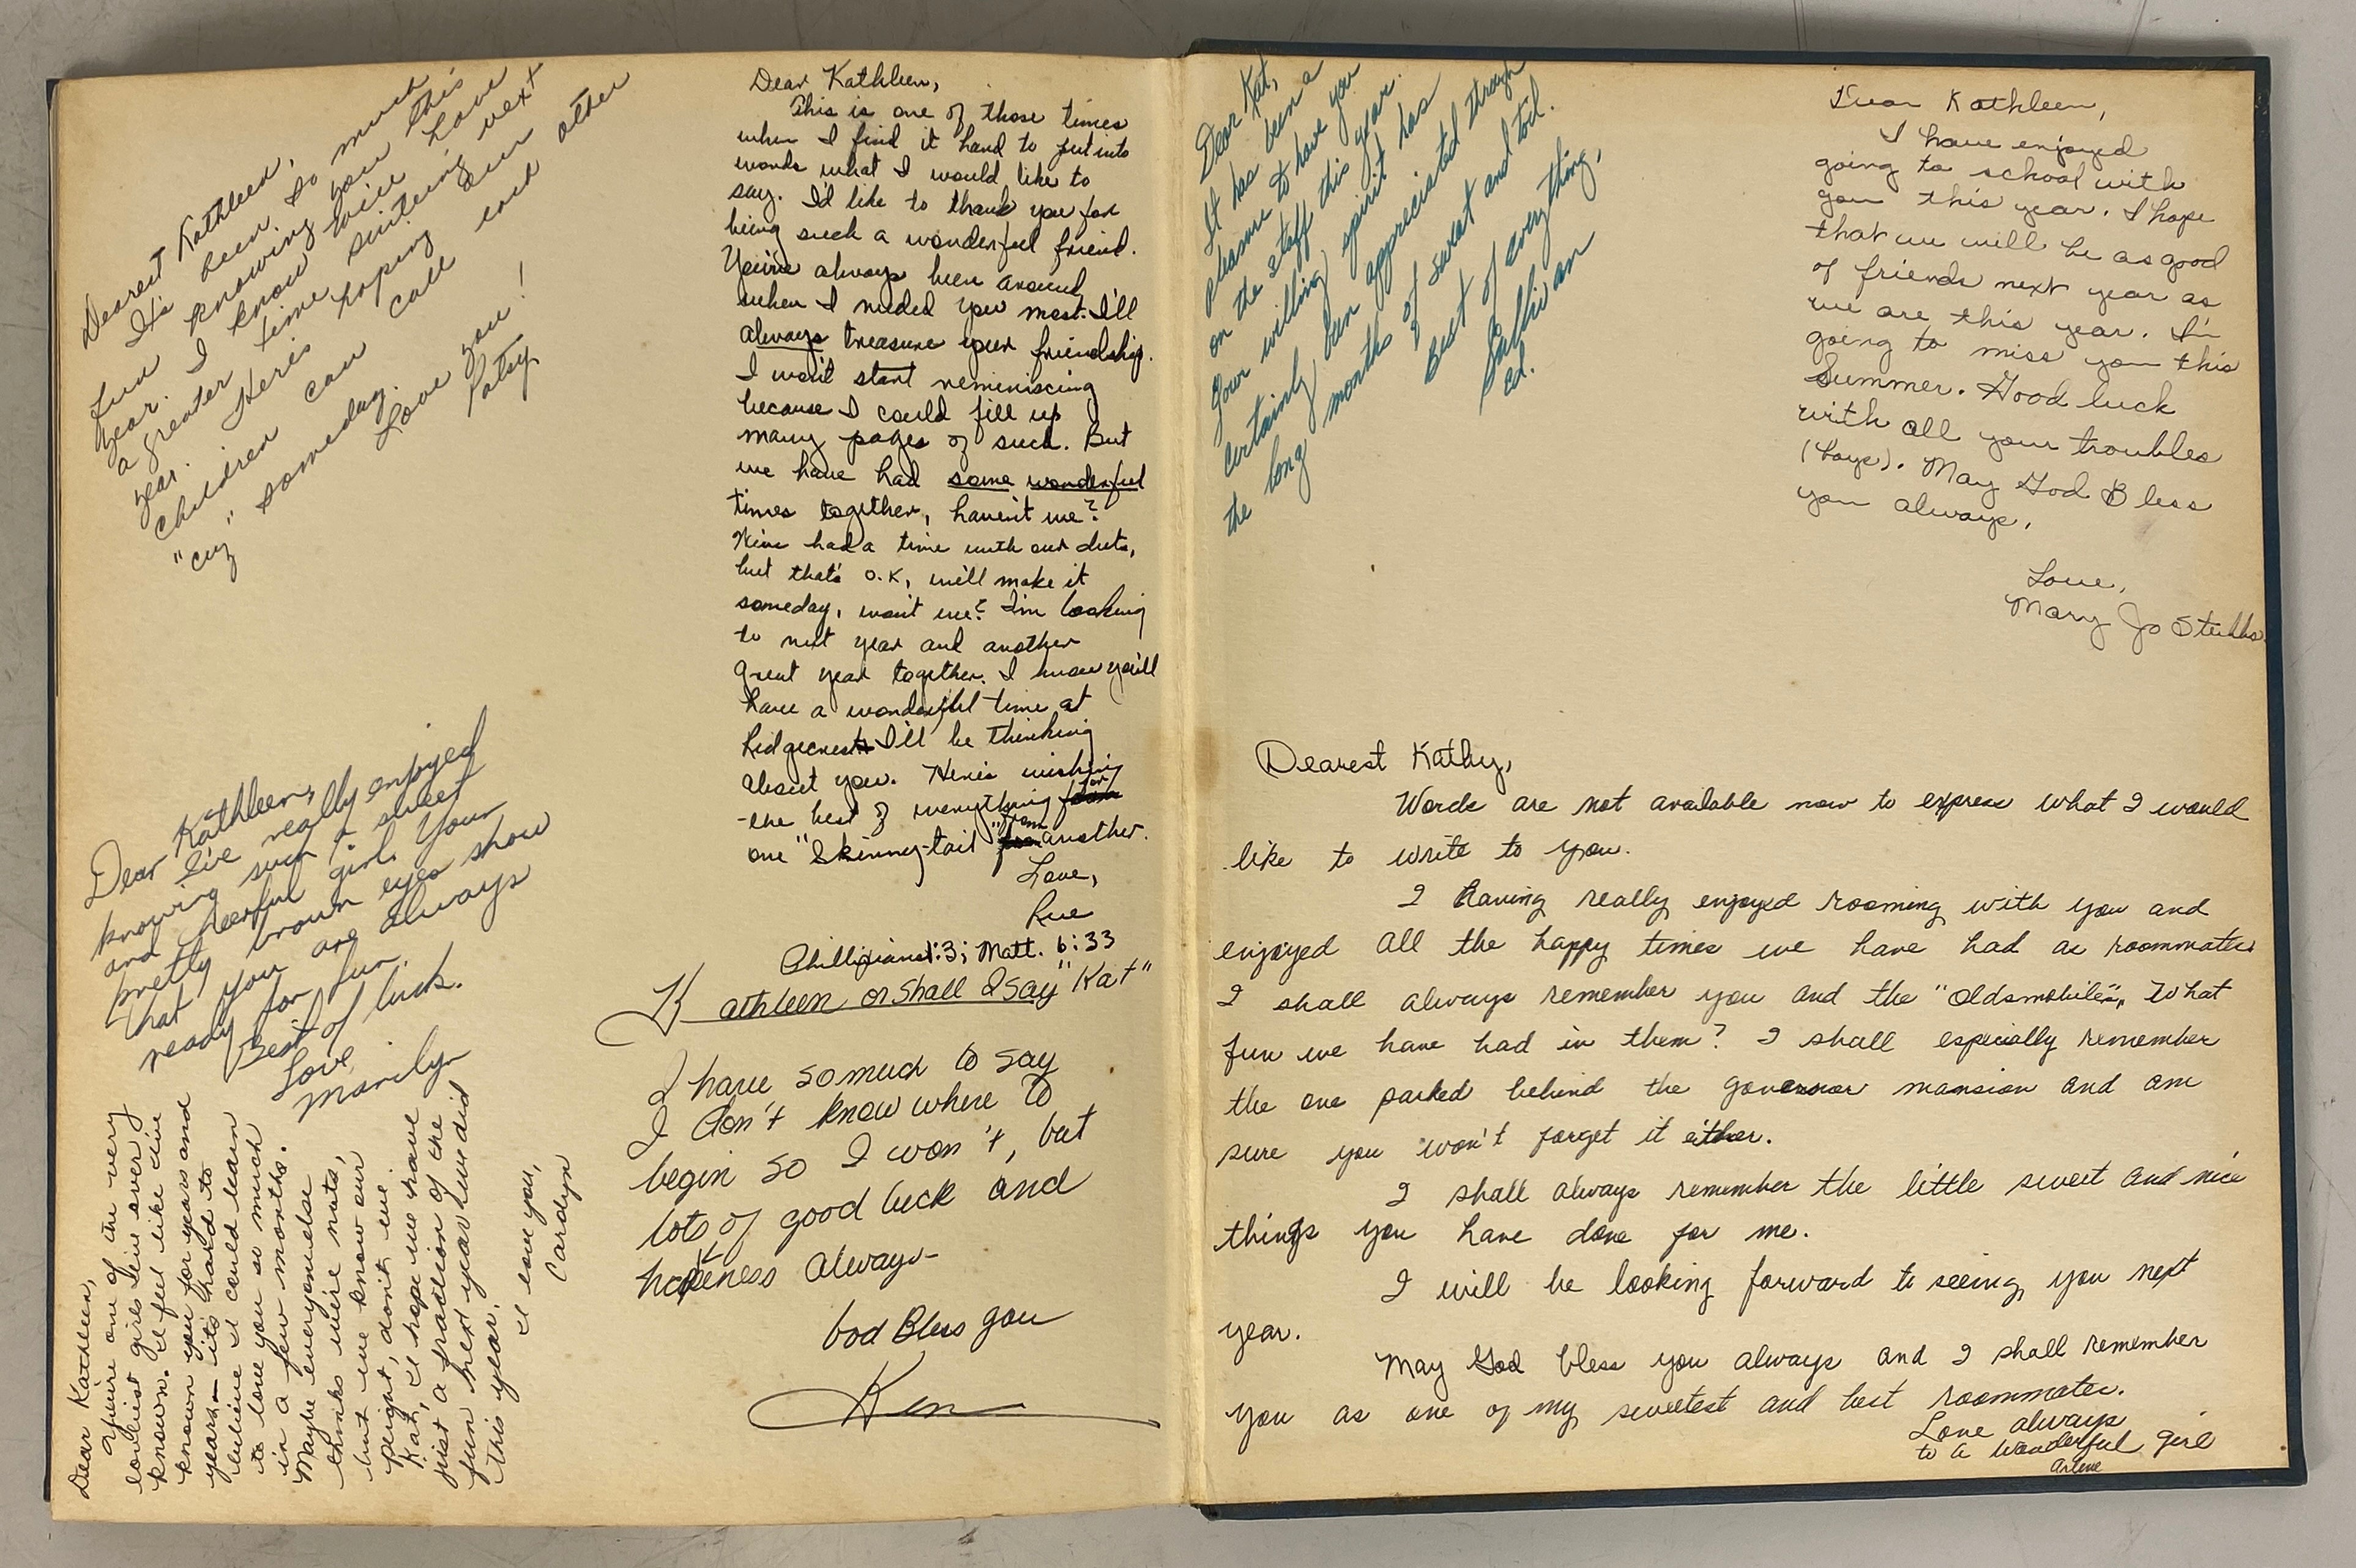 Dearest Kathleen,
It's been so much
fun knowing you this
year. I know we'll have
a greater time sistering next
year. Here's hoping our
children can call each other
"cuz" someday.
Love you!
Patsy
Dear Kathleen,
I've really enjoyed
knowing such a sweet
and cheerful girl. Your
pretty brown eyes show
that you are always
ready for fun.
Best of luck.
Love
Marilyn
Dear Kathleen,
You're one of the very
loveliest girls I've ever
known. I feel like I've
known you for years and
years – its hard to
believe I could learn
to love you so much
in a few months.
Maybe everyone else
thinks we're nuts,
but we know our
, don't we.
Kat, I hope we have
just a fraction of the
fun next year we did
this year.
I love you,
Carolyn
Dear Kathleen,
This is one of those times
when I find it hard to put into
words what I would like to
say. I'd like to thank you for
being such a wonderful friend.
You've always been around
when I needed you most. I'll
always treasure your friendship.
I won't start reminiscing
because I could fill up
many pages of such. But
we have had some wonderful
times together, haven't we?
We've had a time with our diets,
but that's O.K, we'll make it
someday, won't we? I'm looking
to next year and another
great year together. I know you'll
have a wonderful time at
Ridgecrest I'll be thinking
about you. Here's wishing
the best of everything for
one "Skinny-tail" from another.
Love,
Rue
Phillipians 1:3; Matt. 6:33
Kathleen or shall I say "Kat"
I have so much to say
I don't know where to
begin so I won't, but
lots of good luck and
happeness always-
God Bless you
Ken
Dear Kat,
It has been a
pleasure to have you
on the staff this year.
Your willing spirit has
certainly been appreciated through
the long months of sweat and toil.
Best of everything,
Jo Sullivan
Ed.
Dear Kathleen,
I have enjoyed
going to school with
you this year. I hope
that we will be as good
of friends next year as
we are this year. I'm
going to miss you this
Summer. Good luck
with all your troubles
(boys). May God Bless
you always,
Love,
Mary Jo Stubbs
Dearest Kathy,
Words are not available now to express what I would
like to write to you.
I having really enjoyed rooming with you and
enjoyed all the happy times we have had as roommates
I shall always remember you and the "Oldsmobiles". What
fun we have had in them? I shall especially remember
the one parked behind the governor mansion and am
sure you won't forget it either.
I shall always remember the little sweet and nice
things you have done for me.
I will be looking forward to seeing you next
year.
May God bless you always and I shall remember
you as one of my sweetest and best roommates.
Love always
to a wonderful girl
Arlene